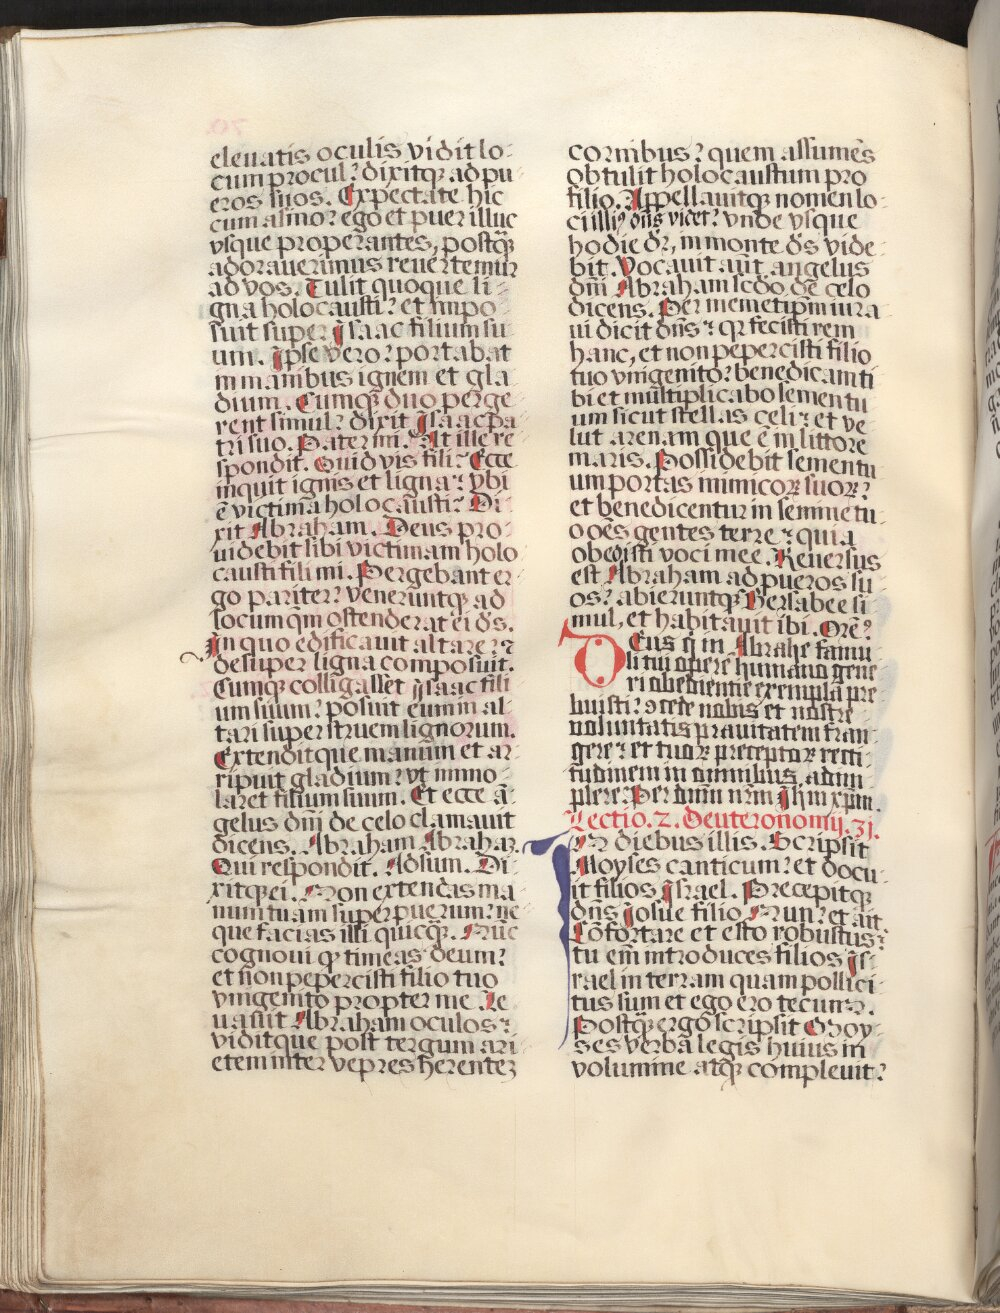 eleuatis oculis vidit lo-
cum procul: dixitqꝫ ad pu-
eros suos. Expectate hic
cum asino: ego et puer illuc
vsque properantes, postqꝫ̄
adorauerimus reuertemur
ad vos. Tulit quoque li-
gna holocausti: et impo-
suit super Isaac filium su-
um. Ipse vero: portabat
in manibus ignem et gla-
dium. Cumqꝫ duo perge-
rent simul: dixit Isaac pa-
tri suo. Pater mi. At ille re-
spondit. Quid vis fili: Ecce
inquit ignis et ligna: vbi
ē victima holocausti: Di-
xit Abraham. Deus pro-
uidebit sibi victimam holo-
causti fili mi. Pergebant er-
go pariter: veneruntqꝫ ad
locum qm̄ ostenderat ei ds̄.
In quo edificauit altare: ⁊
desuper ligna composuit.
Cumqꝫ colligasset ysaac fili-
um suum: posuit eum in al-
tari super struem lignorum.
Extenditque manum et ar-
ripuit gladium: vt immo-
laret filium suum. Et ecce ā-
gelus dn̄i de celo clamauit
dicens. Abraham Abrahaꝫ.
Qui respondit. Adsum. Di-
xitqꝫ ei. Non extendas ma-
num tuam super puerum: ne-
que facias illi quicqꝫ̄. Nūc
cognoui ꝙ timeas deum:
et non pepercisti filio tuo
vnigenito propter me. Le-
uauit Abraham oculos:
viditque post tergum ari-
etem inter vepres herenteꝫ
cornibus: quem assumēs
obtulit holocaustum pro
filio. Appellauitqꝫ nomen lo-
ci illiꝰ dn̄s videt: vnde vsque
hodie dr̄, in monte ds̄ vide-
bit. Vocauit aūt angelus
dn̄i Abraham scdo de celo
dicens. Per memetipm̄ iura-
ui dicit dn̄s: qꝛ fecisti rem
hanc, et non pepercisti filio
tuo vnigenito: benedicam ti-
bi et multiplicabo semen tu-
um sicut stellas celi: et ve-
lut arenam que ē in littore
maris. Possidebit semen tu-
um portas inimicoꝝ suoꝝ:
et benedicentur in semine tu-
o oēs gentes terre: quia
obedisti voci mee. Reuersus
est Abraham ad pueros su-
os: abieruntqꝫ Bersabee si-
mul, et habitauit ibi. Orē:
Deus q in Abrahe famu-
li tui opere humano gene-
ri obedientie exempla pre-
buisti: ꝯcede nobis et nostre
voluntatis prauitatem fran-
gere: et tuoꝝ preceptoꝝ recti-
tudinem in omnibus adim-
plere. Per dn̄m nrm̄ Ihm xpm̄.
Lectio. 2. Deuteronomij. 31.
In diebus illis. Scripsit
Moyses canticum: et docu-
it filios Israel. Precepitqꝫ
dn̄s Iosue filio Nun: et ait.
Cōfortare et esto robustus:
tu em̄ introduces filios Is-
rael in terram quam pollici-
tus sum et ego ero tecum.
Postqꝫ̄ ergo scripsit Moy-
ses verba legis huius in
volumine atqꝫ compleuit: